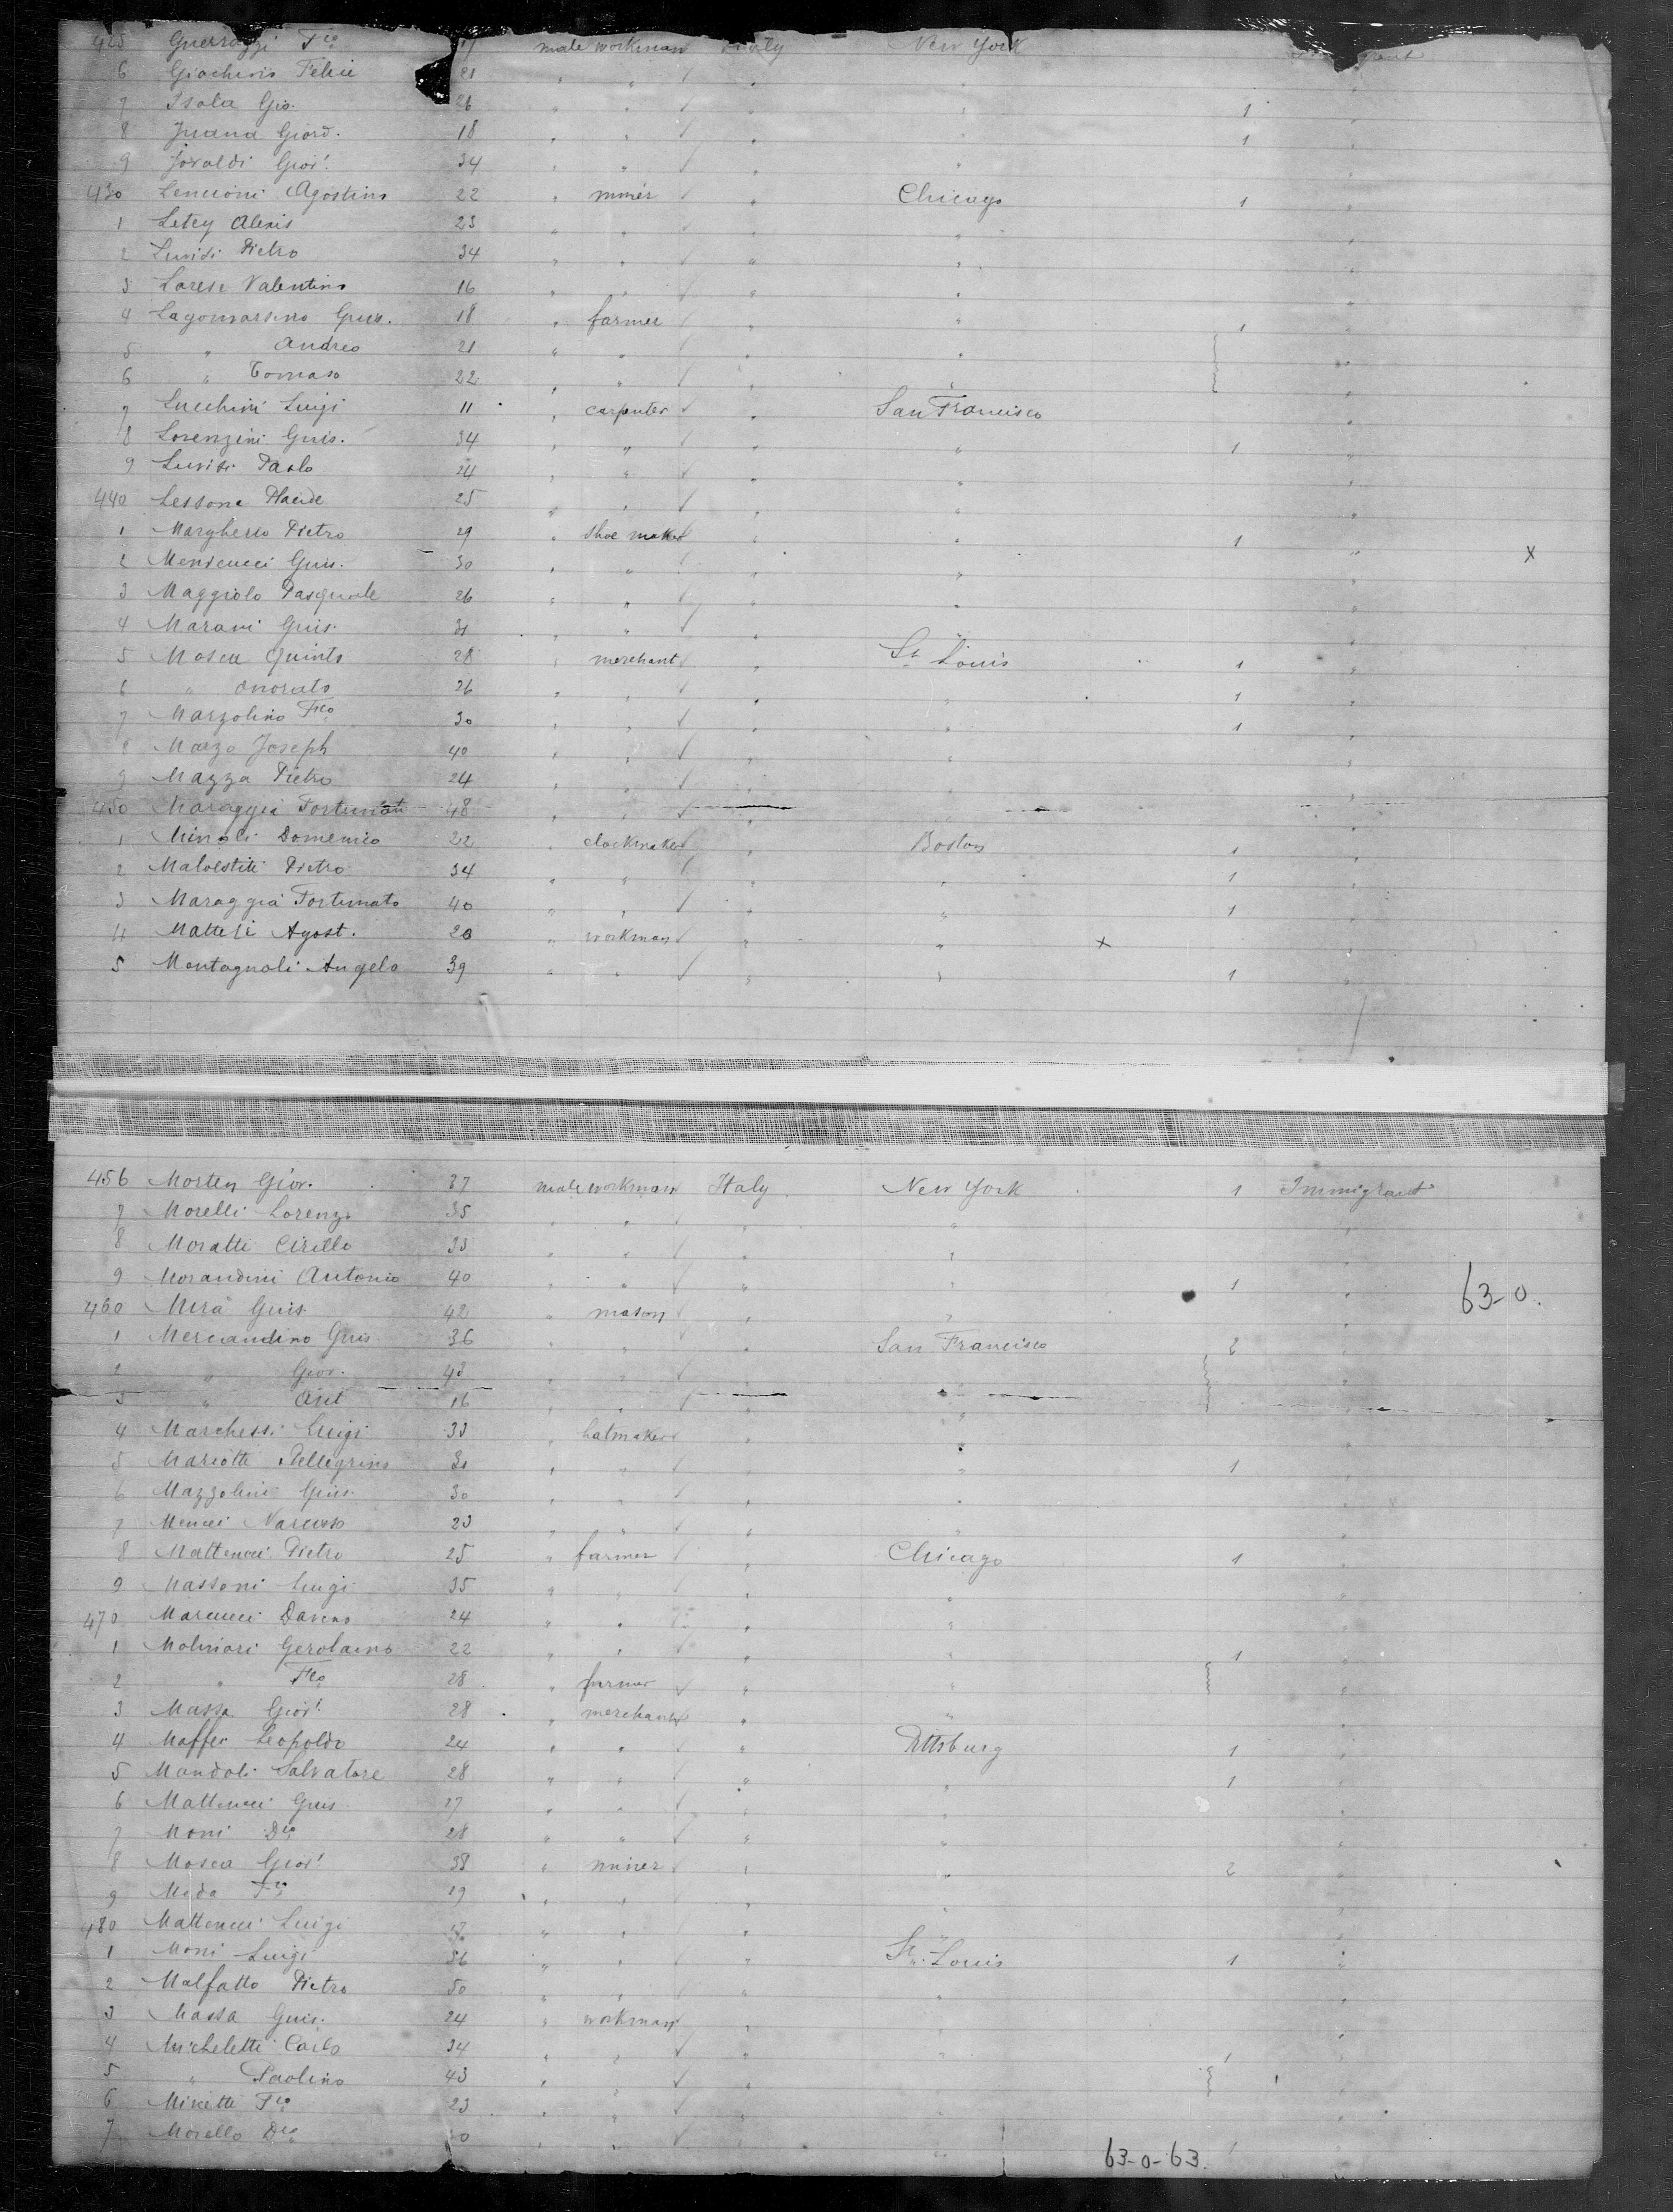 425 Guerrazzi Fco 17 male workman Italy New York
6 Giachini Felice 21 " " " "
7 Isola Gio. 26 " " " " 1 "
8 Juana Giord. 18 " " " " 1 "
9 Jovaldi Giov! 34 " " " " "
430 Lencioni Agostino 22 " miner " Chicago 1 "
1 Letey Alexis 23 " " " " "
2 Luvisi Pietro 34 " " " " "
3 Valentino 16 " " " " "
4 Lagomarsino Guis. 18 " farmer " " 1 "
5 " Andreo 21 " " " " "
6 " Tomaso 22 " " " " "
7 Lucchini Luigi 11 " carpenter " San Francisco "
8 Lorenzini Guis. 34 " " " " 1 "
9 Luvisi Paolo 24 " " " " "
440 Lessona Placide 25 " " " " "
1 Margherio Pietro 29 " shoe maker " " 1 " x
2 Mencucci Guis. 30 " " " " "
3 Maggiolo Pasquale 26 " " " " "
4 Marani Guis. 31 " " " " "
5 Mosca Quinto 28 " merchant " St Louis 1 "
6 " Onorato 26 " " " " 1 "
7 Marzolino Fco 30 " " " " 1 "
8 Marzo Joseph 40 " " " " "
9 Mazza Pietro 24 " " " " "
450 Maraggia 48 " " " " "
1 Minoli Domenico 22 " clockmaker " Boston 1 "
2 Malvestiti Pietro 34 " " " " 1 "
3 Maraggia Fortunato 40 " " " " 1 "
4 Agost. 20 " workman " " x
5 Montagnoli Angelo 39 " " " " 1 "
456 Morten Giov. 37 male workman Italy New York 1 Immigrant
7 Morelli Lorenzo 35 " " " " "
8 Moratti Cirillo 33 " " " " "
9 Morandini Antonio 40 " " " " 1 "
63-0.
460 Mura Guis. 42 " mason " " "
1 Mercandino Guis. 36 " " " San Francisco 2 "
2 " Giov. 43 " " " " "
3 " Ant 16 " " " " "
4 Marchessi Luigi 33 " hatmaker " " "
5 Mariotti Pellegrino 31 " " " " 1 "
6 Mazzolini Guis. 30 " " " " "
7 Mencci Narcisso 23 " " " " "
8 Matteucci Pietro 25 " farmer " Chicago 1 "
9 Massoni Luigi 35 " " " " "
470 Marcucci 24 " " " " "
1 Molinari Gerolamo 22 " " " " 1 "
2 " Fco 28 " farmer " " "
3 Massa Giov! 28 " merchant " " "
4 Maffei Leopoldo 24 " " " Pittsburg 1 "
5 Mandoli Salvatore 28 " " " " 1 "
6 Matteucci Guis 27 " " " " "
7 Moni Dco 28 " " " " "
8 Mosca Giov! 38 " miner " " 2 "
9 Moda Fco 19 " " " " "
480 Matteucci Luigi " " " " "
1 Moni Luigi 36 " " " St. Louis 1 "
2 Malfatto Pietro 50 " " " " "
3 Massa Guis. 24 " workman " " "
4 Micheletti Carlo 34 " " " " 1 "
5 " Paolino 43 " " " " "
6 Minetti Fco 23 " " " " "
7 Morello Dco 30 " " " " 1 "
63-0-63.